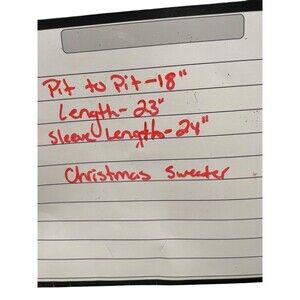 Pit to Pit-18"
Length-23"
Sleeve Lengths-24"
Christmas Sweater